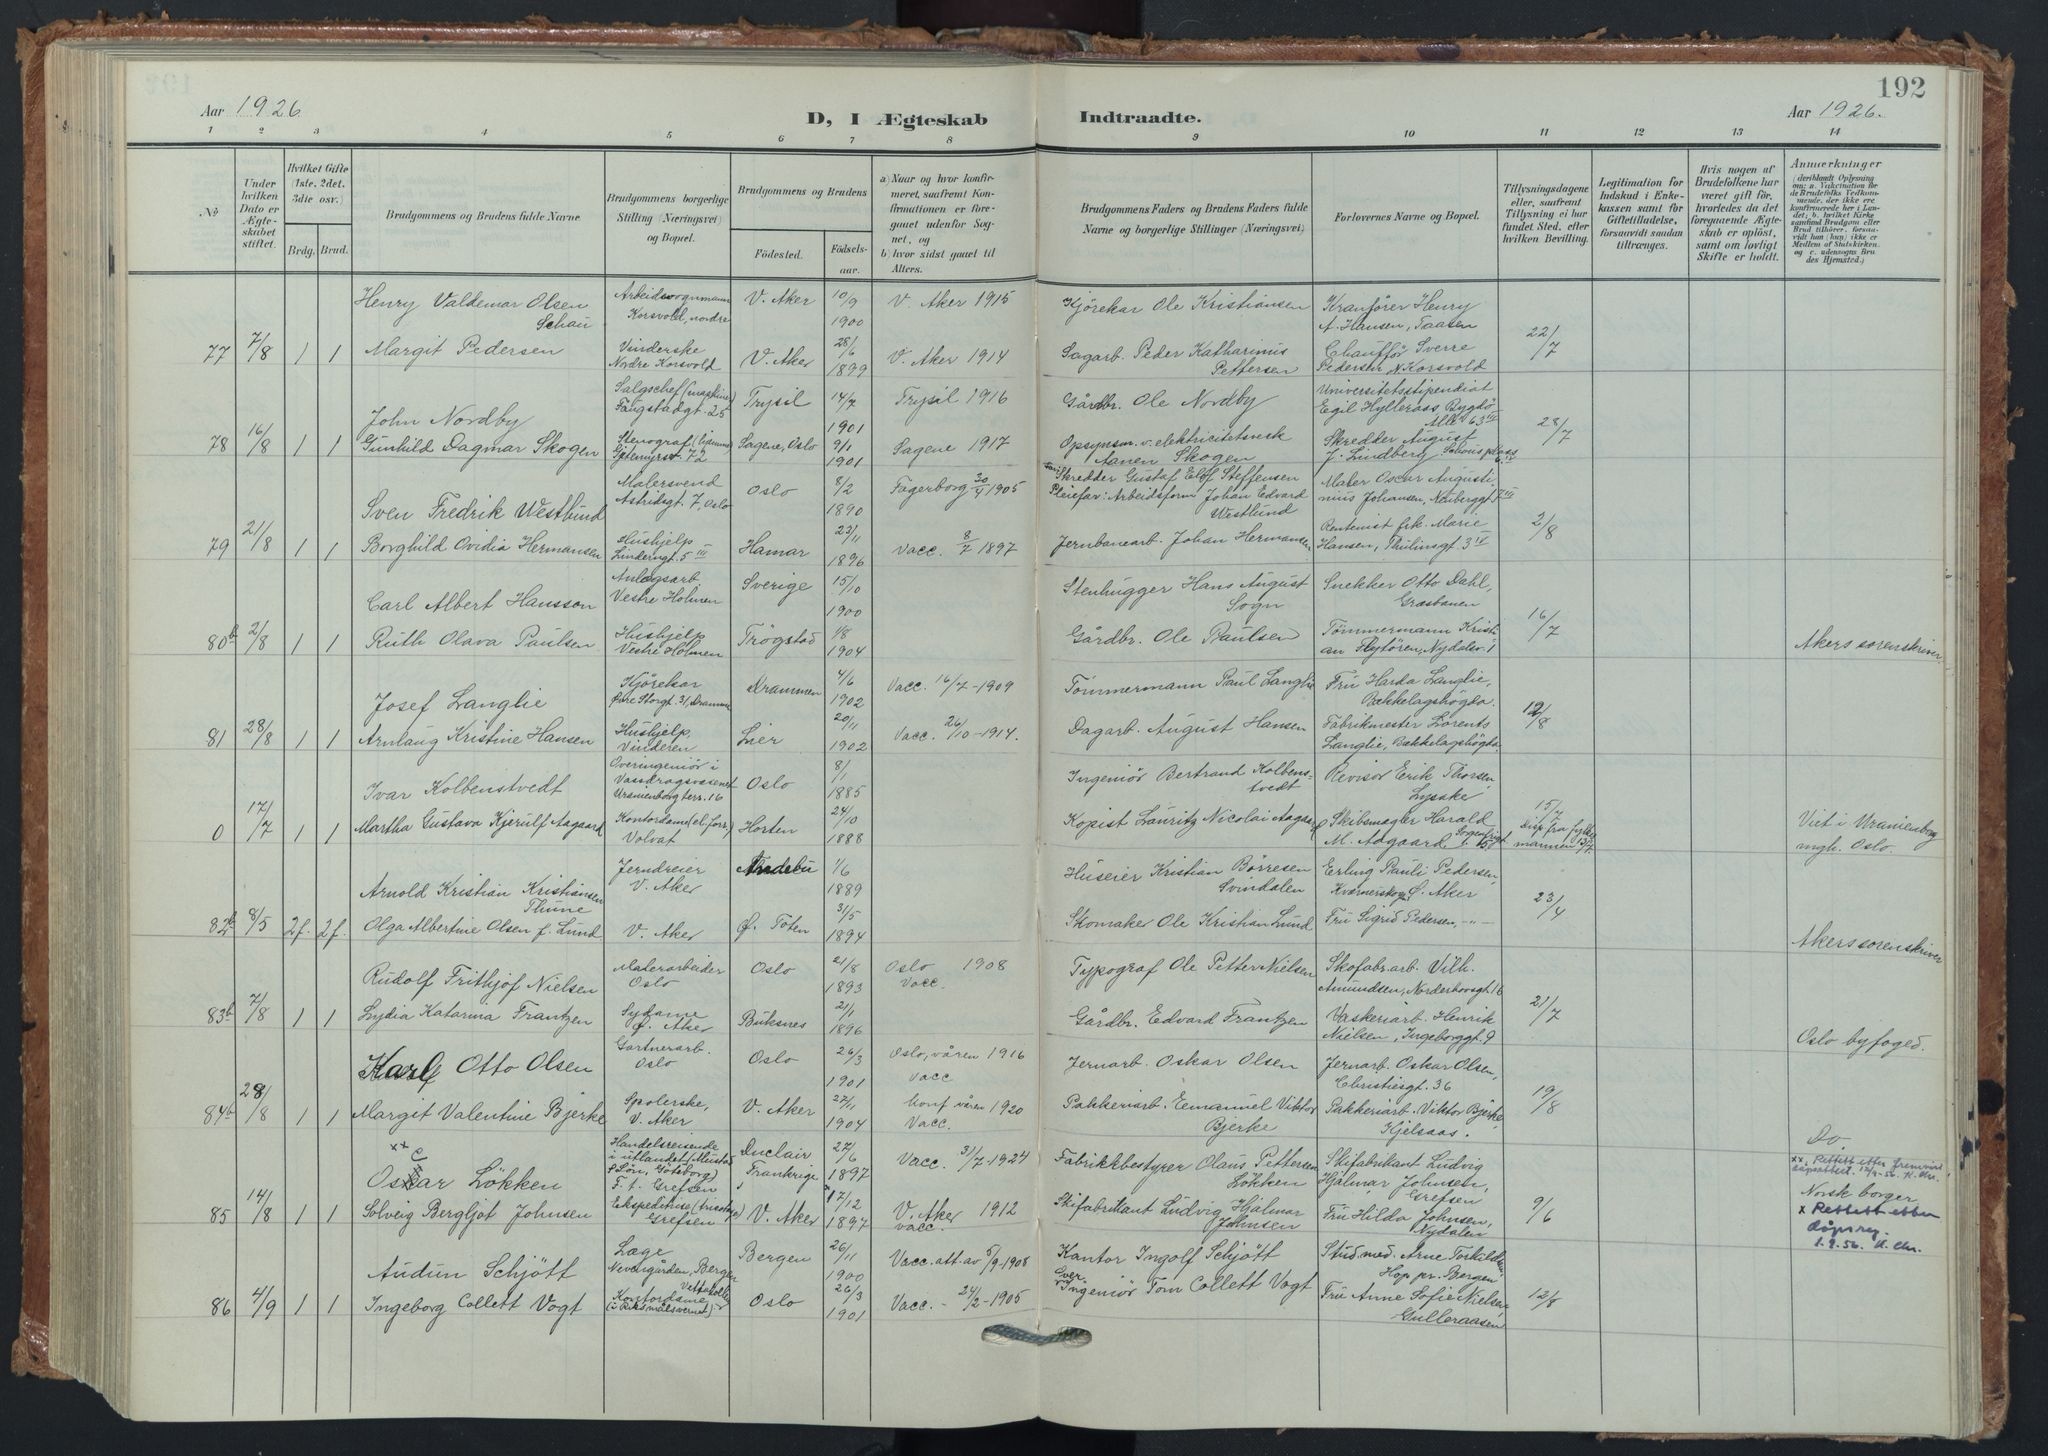 192
Aar 1926
D, I Ægteskab Indtraadte.
Aar 1926.
1 2 3 4 5 6 7 8 9 10 11 12 13 14
№
Under hvilken Dato er Ægteskabet stiftet.
Hvilket Gifte (1ste. 2det. 3die osv.)
Brdg. Brud.
Brudgommens og Brudens fulde Navne
Brudgommens borgerlige Stilling (Næringsvei) og Bopæl.
Brudgommens og Brudens
Fødested.
Fødselsaar.
a) Naar og hvor konfirmeret, saafremt Konfirmationen er foregaaet udenfor Sognet, og
b) hvor sidst gaaet til Alters.
Brudgommens Faders og Brudens Faders fulde Navne og borgerlige Stillinger (Næringsvei)
Forlovernes Navne og Bopæl.
Tillysningsdagene eller, saafremt Tillysning ei har fundet Sted, efter hvilken Bevilling.
Legitimation for Indskud i Enkekassen samt for Giftetilladelse, forsaavidt saadan tiltrænges.
Hvis nogen af Brudefolkene har været gift før, hvorledes da det foregaaende Ægteskab er opløst, samt om lovligt Skifte er holdt.
Anmerkninger
(deriblandt Oplysning om: a. Vakcination for de Brudefolks Vedkommende, der ikke ere konfirmerede her i Landet; b. hvilket Kirkesamfund Brudgom eller Brud tilhører, forsaavidt han (hun) ikke er Medlem af Statskirken, og c. udensogns Brudes Hjemsted.)
Henry Valdemar Olsen Schau
Arbeidsvognmann Korsvold, nordre
V. Aker
10/9 1900
V. Aker 1915
Kjörekar Ole Kristiansen
Kranförer Henry A. Hansen, Taasen
77 7/8 1 1
Margit Pedersen
Vinderske Nordre Korsvold
V. Aker
28/6 1899
V. Aker 1914
Sagarb. Peder Katharinus Pettersen
Chauffør Sverre Pedersen N. Korsvold
22/7
John Nordby
Salgschef (maskiner) Fougstadgt. 25
Trysil
14/7 1901
Trysil 1916
Gårdbr. Ole Nordby
Universitetsstipendiat Egil Hylleraas Bygdö Alle 63 III
78 16/8 1 1
Gunhild Dagmar Skogen
Stenograf Gjetemyrsv. 72
Sagene, Oslo
9/1 1901
Sagene 1917
Opsynsm. v. elektricitetsverk Aanen Skogen
Skredder August J. Lindberg, Schous plass
28/7
Sven Fredrik Westlund
Malersvend Astridsgt. 7, Oslo
Oslo
8/2 1890
Fagerborg 30/4 1905
Skredder Gustaf Elof Steffensen
Pleiefar: Arbeidsform. Johan Edvard Westlund
Maler Oscar Augustinius Johansen, Neuberggt. 7 III
79 21/8 1 1
Borghild Ovidia Hermansen
Hushjelp Linderngt. 5 III
Hamar
23/11 1896
Vacc. 8/7 1897
Jernbanearb. Johan Hermansen
Rentenist frk. Marie Hansen, Thulinsgt. 3 IV
2/8
Carl Albert Hansson
Anlægsarb. Vestre Holmen
Sverige
15/10 1900
Stenhugger Hans August Sogn
Snekker Otto Dahl, Græsbanen
80b 2/8 1 1
Ruth Olava Paulsen
Hushjelp Vestre Holmen
Trögstad
1/8 1904
Gårdbr. Ole Paulsen
Tömmermann Kristian Flytören, Nydalsv. 1
16/7
Akers sorenskriver
Josef Langlie
Kjörekar Øvre Storgt. 31, Drammen
Drammen
4/6 1902
Vacc. 16/7 - 1909
Tömmermann Paul Langlie
Fru Harda Langlie, Bækkelagshögda
81 28/8 1 1
Arnlaug Kristine Hansen
Hushjelp, Vinderen
Lier
20/11 1902
Vacc. 26/10 - 1914.
Dagarb. August Hansen
Fabrikmester Lorents Langlie, Bækkelagshögda
12/8
Ivar Kolbenstvedt
Overingeniör i Vassdragsvesenet Uranienborg terr. 16
Oslo
8/1 1885
Ingeniör Bertrand Kolbenstvedt
Revisor Erik Thorsen, Lysake
0 17/7 1 1
Martha Gustava Kjerulf Aagaard
Kontordame (el. forr.) Volvat
Horten
24/10 1888
Kopist Lauritz Nicolai Aagaard
Skibsmægler Harald M. Aagaard, Sorgenfrigt. 15
15/7 Disp. fra fylkesmannen 13/7.
Viet i Uranienborg mgh. Oslo.
Arnold Kristian Kristiansen Thune
Jerndreier V. Aker
Andebu
1/6 1889
Huseier Kristian Börresen Svindalen
Erling Pauli Pedersen, Kværnerskogen Ö. Aker
82b 8/5 2f. 2f.
Olga Albertine Olsen f. Lund
V. Aker
Ø. Toten
31/5 1894
Skomaker Ole Kristian Lund
Fru Sigrid Pedersen, - " -
23/4
Akers sorenskriver
Rudolf Frithjof Nielsen
Materarbeider Oslo
Oslo
21/8 1893
Oslo 1908 Vacc.
Typograf Ole Petter Nielsen
Skofabr.arb. Vilh. Amundsen, Norderhovsgt. 16
83b 7/8 1 1
Lydia Katarina Frantzen
Sydame Ø. Aker
Buksnes
21/1 1896
Gårdbr. Edvard Frantzen
Vaskeriarb. Henrik Nielsen, Ingeborggt. 9
21/7
Oslo byfoged.
Karl Otto Olsen
Gartnerarb. Oslo
Oslo
26/3 1901
Oslo, våren 1916 Vacc
Jernarb. Oskar Olsen
Jernarb. Oskar Olsen, Christiesgt. 36
84b 28/8 1 1
Margit Valentine Bjerke
Spolerske, V. Aker
V. Aker
27/11 1904
konf våren 1920 Vacc.
Pakkeriarb. Eemanuel Viktor Bjerke
Pakkeriarb. Viktor Bjerke, Kjelsaas.
19/8
Do.
xx c
Oskar Lökken
Handelsreisende i utlandet (Mustad & Sön, Göteborg) F. t. Grefsen
Duclair Frankrige
27/6 1897
Vacc. 31/7 - 1924
Fabrikkbestyrer Olaus Pettersen Lökken
Skifabrikant Ludvig Hjalmar Johnsen, Grefsen
xx. Rettet efter fremvist dåpsattest. 12/9-56. K. Chr.
Norsk borger
85 14/8 1 1
Solveig Bergljot Johnsen
Ekspeditrise (tricotage) Grefsen
V. Aker
17/12 1897
V. Aker 1912 vacc.
Skifabrikant Ludvig Hjalmar Johnsen
Fru Hilda Johnsen, Nydalen
9/6
x Rettet etter dåpsreg. 1.9.56. K. Chr.
Audun Schjött
Læge Nevengården, Bergen
Bergen
26/11 1900
Vacc. att. av 5/9 - 1908
Kantor Ingolf Schjött
Stud. med. Arne Torkildsen, Hop pr. Bergen
86 4/9 1 1
Ingeborg Collett Vogt
Vettakollen Kontordame (i Riksmålsvernet)
Oslo
26/3 1901
Vacc. - 24/2 - 1905
Over Ingeniör Tom Collett Vogt
Fru Anne Sofie Nielsen, Gulleraasen
12/8